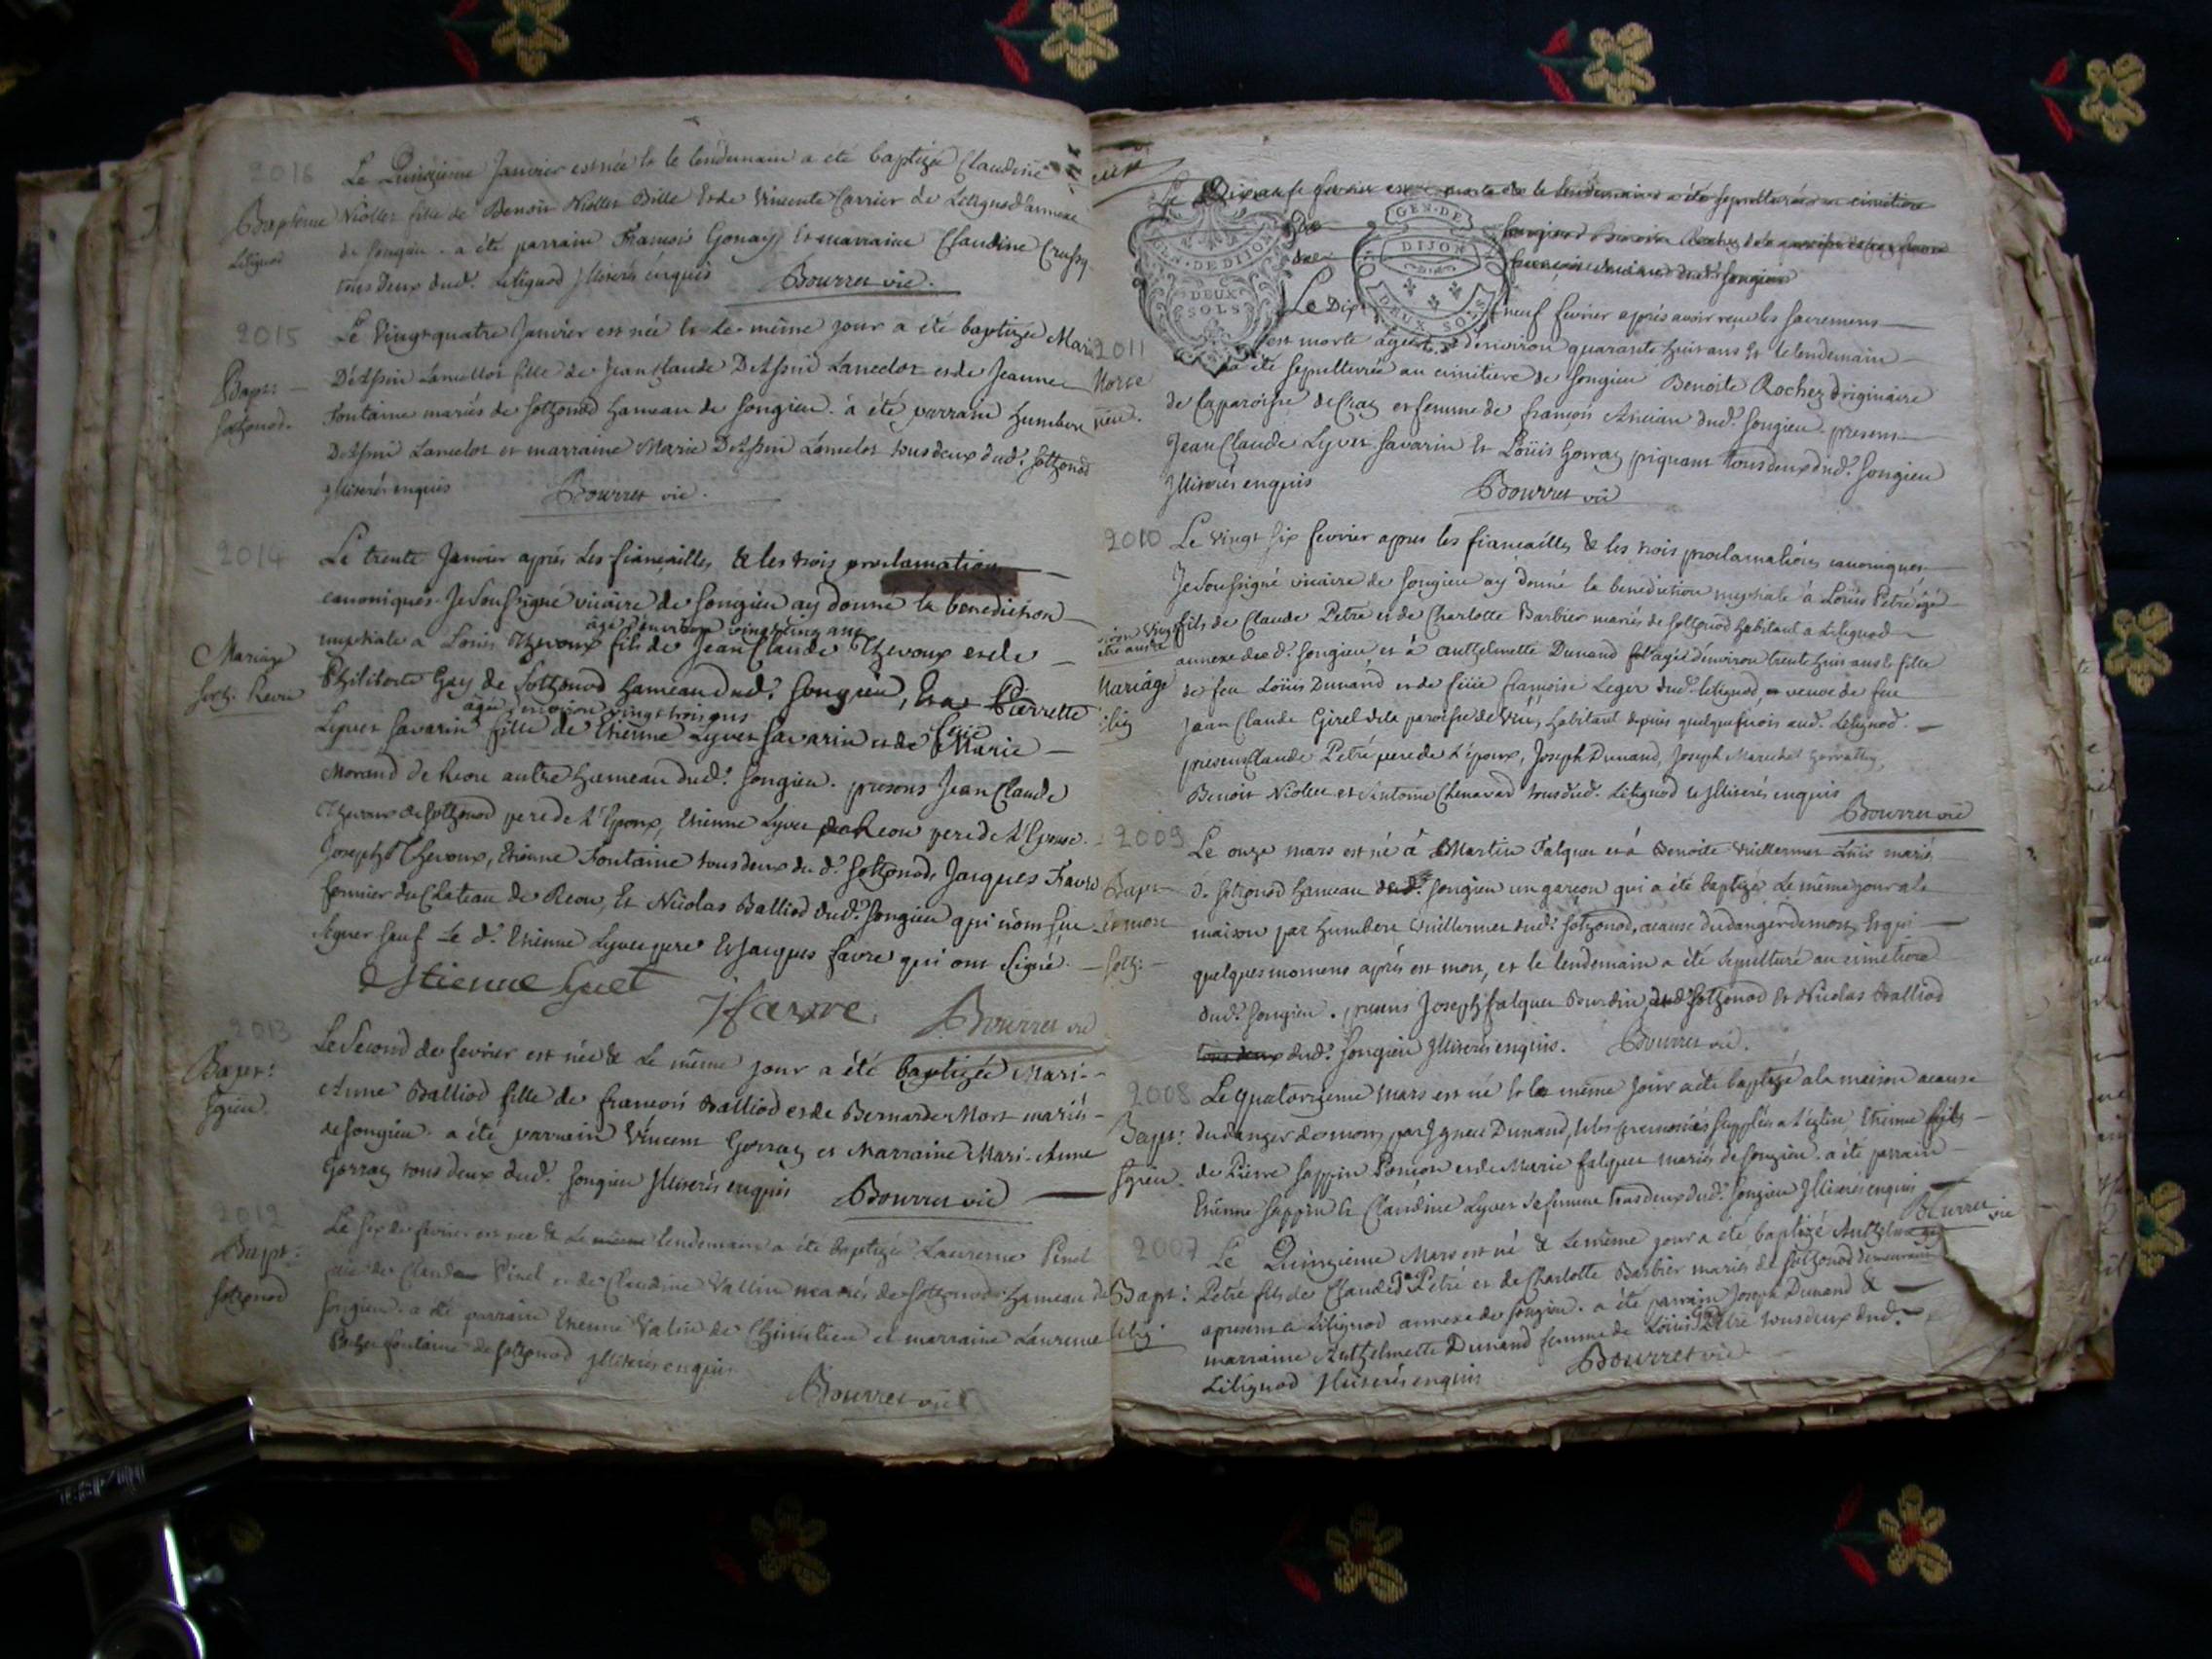 2016
Le Quinzieme Janvier est née & le lendemain a été baptizée Claudine
Baptême
Niollet fille de Benoit Niollet Bille & de Vincente Carrier de Litignod annexe
Litignod
de Songieu. a été parrain François Gonay & marraine Claudine
tous deux dud. Litignod Illiterés enquis Bourret vic.
2015
Le vingt quatre Janvier est née & le même jour a été baptizée Mari
Bapt:
Dessin Lancellot fille de Jean Claude Dessin Lancelot et de Jeanne
Sothonod.
Fontaine mariés de Sothonod hameau de Songieu. a été parrain humbert
Dessin Lancelot et marraine Marie Dessin Lancelot tous deux dud. Sothonod
Illiterés enquis Bourret vic.
2014
Le trente Janvier après les fiançailles & les trois proclamation
canoniques Je soussigné vicaire de Songieu ay donné la benediction
âgé d'environ vingt cinq ans
Mariage
nuptiale a Louis Thevoux fils de Jean Claude Thevoux et de
Soth. Reou
Philiberte Gay de Sothonod hameau dud. Songieu, & a Pierrette
agée d'environ vingt trois ans
Lyvet Savarin fille de Etienne Lyvet Savarin et de feüe Marie
Morand de Reou autre hameau dud. Songieu. presens Jean Claude
Thevoux de Sothonod pere de l'Epoux, Etienne Lyvet de Reou pere de l'Epouse.
Joseph Thevoux, Etienne Fontaine tous deux du d. Sothonod, Jacques Favre
fermier du Chateau de Reou, & Nicolas Balliod dud. Songieu qui n'ont sçu
signer sauf le d. Etienne Lyvet pere & Jacques Favre qui ont signé.
Estienne Lyvet
J favre. Bourret vic
2013
Le Second de fevrier est née & le même jour a été baptizée Mari-
Bapt:
Sgieu.
Anne Balliod fille de françois Balliod et de Bernarde Mort mariés
de Songieu. a été parrain Vincent Gorraz et Marraine Mari-Anne
Gorraz tous deux dud. Songieu Illiterés enquis Bourret vic
2012
Le six de fevrier est née & le même lendemain a été baptizée Laurence Pinel
Bapt:
fille de Claude Pinel et de Claudine Vallin mariés de Sothonod hameau de
Sothonod
Songieu. a été parrain Etienne Valin de et marraine Laurence
fontaine de Sothonod Illiterés enquis
Bourret vic
Le Dixneuf fevrier est morte & le lendemain a été sepulturée au cimitiere
GEN. DE DIJON
DEUX SOLS
GEN. DE DIJON
DEUX SOLS
Le Dix neuf fevrier après avoir reçu les sacremens
2011
est morte agée d'environ quarante huit ans & le lendemain
Morte
a été sepulturée au cimitiere de Songieu Benoite Rochez originaire
de la paroisse de et femme de françois Ancian dud. Songieu presens
Jean Claude Lyvet Savarin & Loüis Gorraz piquant tous deux dud. Songieu
Illiterés enquis Bourret vic
2010
Le vingt six fevrier apres les fiancailles & les trois proclamations canoniques
Je soussigné vicaire de Songieu ay donné la benediction nuptiale à Loüis Petré âgé
fils de Claude Petré et de Charlotte Barbier mariés de Sothonod habitant a Litignod
annexe dud. Songieu et à Anthelmette Dunand agée d'environ trente huit ans & fille
Mariage
de feu Loüis Dunand et de feüe françoise Leger dud. Litignod, veuve de feu
Jean Claude Girel de la paroisse de habitant depuis quelque mois aud. Litignod.
presens Claude Petré pere de l'époux, Joseph Dunand, Joseph Marechal
Benoit Niollet et Antoine Chenavard tous dud. Litignod & Illiterés enquis
Bourret vic
2009
Le onze mars est né à Martin Falquet et à Benoite Vuillermet mariés
Bapt
d. Sothonod hameau dud. Songieu un garçon qui a été baptizé le même jour a la
et mort
maison par humbert Vuillermet dud. Sothonod, acause du danger de mort, & qui
Soth:
quelques momens après est mort, et le lendemain a été sepulturé au cimetiere
dud. Songieu. presens Joseph falquet Bourdin dud. Sothonod & Nicolas Balliod
tous deux dud. Songieu Illiterés enquis. Bourret vic.
2008
Le quatorzieme mars est né & le même jour a été baptizé a la maison acause
Bapt:
du danger de mort, par Dunand, & les ceremonies supplées a l'église Etienne fils
Sgieu.
de Pierre Sappin et de Marie falquet mariés de Songieu. a été parrain
Etienne Sappin & Claudine Lyvet sa femme tous deux dud. Songieu Illiterés enquis
Bourret vic
2007
Le Quinzieme Mars est né & le même jour a été baptizé Anthelme
Bapt:
Petré fils de Claude Petré et de Charlotte Barbier mariés de Sothonod demeurants
Litig.
a present a Litignod annexe de Songieu. a été parrain Joseph Dunand &
marraine Anthelmette Dunand femme de Loüis Petré tous deux dud.
Litignod Illiterés enquis Bourret vic